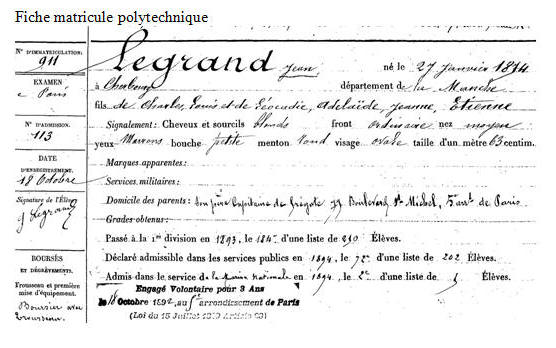 Fiche matricule polytechnique
N° D'IMMATRICULATION:
911
EXAMEN
à Paris
N° D'ADMISSION.
113
DATE
D'ENREGISTREMENT.
18 Octobre
Signature de l'Élève
J Legrand
BOURSES
ET DÉGRÈVEMENTS.
Trousseau et première
mise d'équipement.
Boursier avec
Trousseau.
Legrand Jean, né le 27 janvier 1874
à Cherbourg département de la Manche
fils de Charles, Louis et de Léocadie, Adelaïde, Jeanne, Etienne
Signalement: Cheveux et sourcils blonds front ordinaire nez moyen
yeux Marrons bouche petite menton rond visage ovale taille d'un mètre 63 centim.
Marques apparentes:
Services militaires:
Domicile des parents: Son père Capitaine de frégate 79 Boulevard St Michel, 5e arrt de Paris
Grades obtenus:
Passé à la 1re division en 1893, le 184e d'une liste de 210 Élèves.
Déclaré admissible dans les services publics en 1894, le 72e d'une liste de 202 Élèves.
Admis dans le service de la Marine Nationale en 1894, le 2e d'une liste de Élèves.
Engagé Volontaire pour 3 Ans
le 18 Octobre 1892, au 5e arrondissement de Paris
(Loi du 15 Juillet 1889 Article 23)